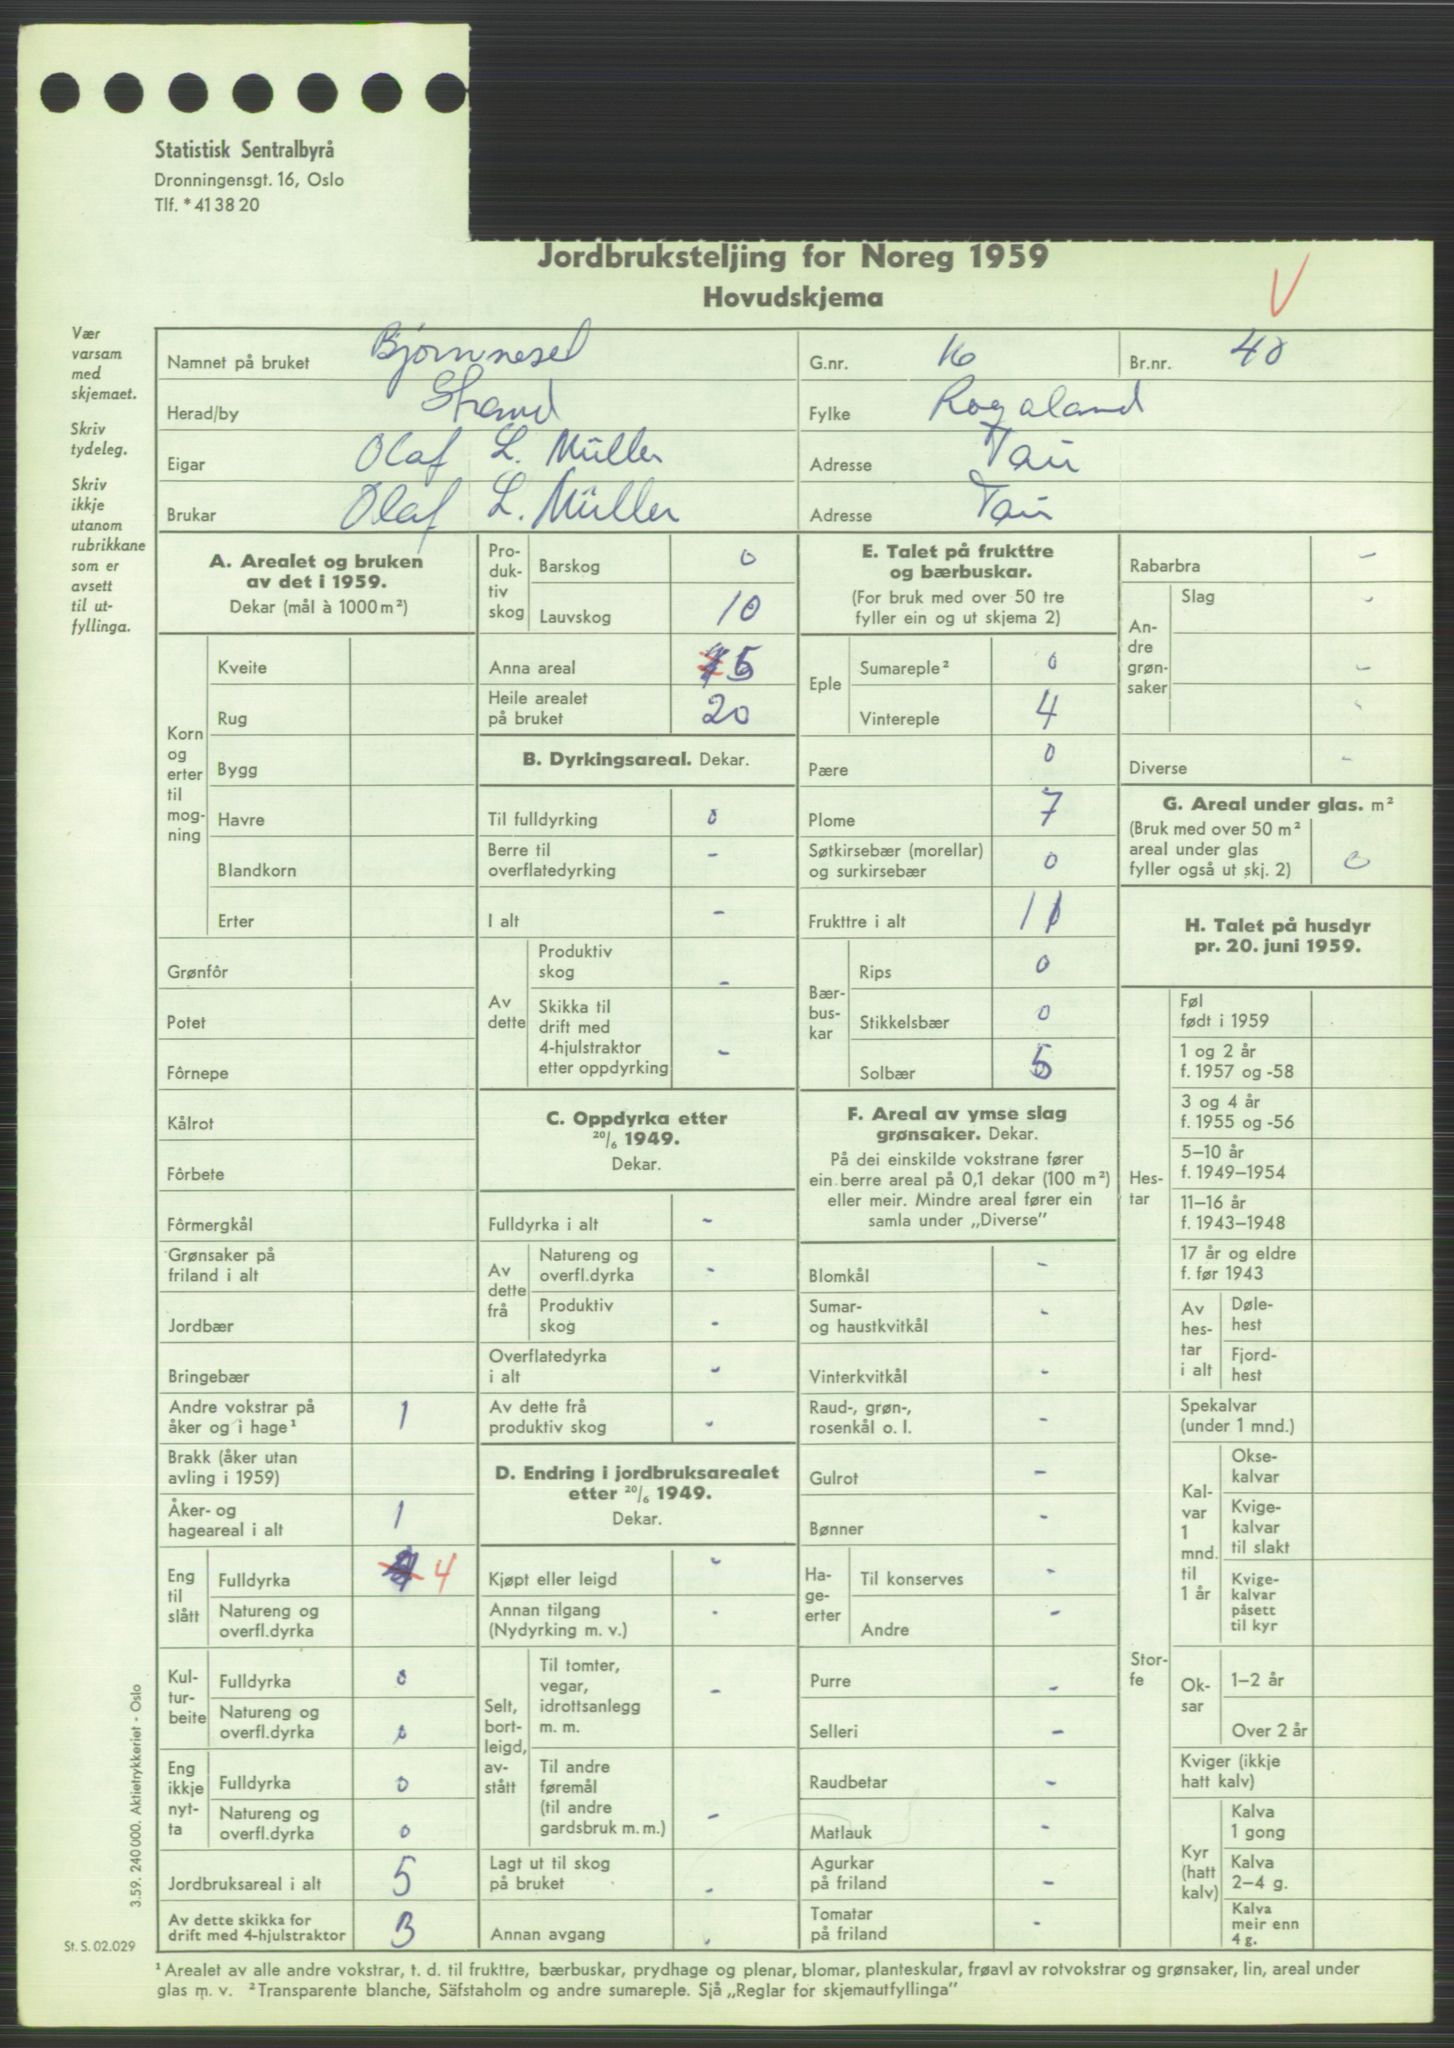 Statistisk Sentralbyrå
Dronningensgt. 16, Oslo
Tlf. * 41 38 20
Jordbruksteljing for Noreg 1959
Hovudskjema
V
Vær
varsam
med
skjemaet.
Skriv
tydeleg.
Skriv
ikkje
utanom
rubrikkane
som er
avsett
til ut-
fyllinga.
Namnet på bruket Bjørnneset G.nr. 16 Br.nr. 48
Herad/by Strand Fylke Rogaland
Eigar Olaf L. Müller Adresse Tau
Brukar Olaf L. Müller Adresse Tau
A. Arealet og bruken
av det i 1959.
Dekar (mål à 1000 m²)
Korn
og
erter
til
mog-
ning
Kveite
Rug
Bygg
Havre
Blandkorn
Erter
Grønfôr
Potet
Fôrnepe
Kålrot
Fôrbete
Fôrmergkål
Grønsaker på
friland i alt
Jordbær
Bringebær
Andre vokstrar på
åker og i hage¹ 1
Brakk (åker utan
avling i 1959)
Åker- og
hageareal i alt 1
Eng
til
slått
Fulldyrka 4
Natureng og
overfl.dyrka
Kul-
tur-
beite
Fulldyrka 0
Natureng og
overfl.dyrka 0
Eng
ikkje
nyt-
ta
Fulldyrka 0
Natureng og
overfl.dyrka 0
Jordbruksareal i alt 5
Av dette skikka for
drift med 4-hjulstraktor 3
Pro-
duk-
tiv
skog
Barskog 0
Lauvskog 10
Anna areal 5
Heile arealet
på bruket 20
B. Dyrkingsareal. Dekar.
Til fulldyrking 0
Berre til
overflatedyrking -
I alt -
Av
dette
Produktiv
skog -
Skikka til
drift med
4-hjulstraktor
etter oppdyrking -
C. Oppdyrka etter
20/6 1949.
Dekar.
Fulldyrka i alt -
Av
dette
frå
Natureng og
overfl.dyrka -
Produktiv
skog -
Overflatedyrka
i alt -
Av dette frå
produktiv skog -
D. Endring i jordbruksarealet
etter 20/6 1949.
Dekar.
Kjøpt eller leigd -
Annan tilgang
(Nydyrking m. v.) -
Selt,
bort-
leigd,
av-
stått
Til tomter,
vegar,
idrottsanlegg
m. m. -
Til andre
føremål
(til andre
gardsbruk m. m.) -
Lagt ut til skog
på bruket -
Annan avgang -
E. Talet på frukttre
og bærbuskar.
(For bruk med over 50 tre
fyller ein og ut skjema 2)
Eple
Sumareple² 0
Vintereple 4
Pære 0
Plome 7
Søtkirsebær (morellar)
og surkirsebær 0
Frukttre i alt 11
Bær-
bus-
kar
Rips 0
Stikkelsbær 0
Solbær 5
F. Areal av ymse slag
grønsaker. Dekar.
På dei einskilde vokstrane fører
ein berre areal på 0,1 dekar (100 m²)
eller meir. Mindre areal fører ein
samla under „Diverse”
Blomkål -
Sumar-
og haustkvitkål -
Vinterkvitkål -
Raud-, grøn-,
rosenkål o. l. -
Gulrot -
Bønner -
Ha-
ge-
erter
Til konserves -
Andre -
Purre -
Selleri -
Raudbetar -
Matlauk -
Agurkar
på friland -
Tomatar
på friland -
Rabarbra -
An-
dre
grøn-
saker
Slag -
-
-
Diverse -
G. Areal under glas. m²
(Bruk med over 50 m²
areal under glas
fyller også ut skj. 2) 0
H. Talet på husdyr
pr. 20. juni 1959.
Hes-
tar
Føl
født i 1959
1 og 2 år
f. 1957 og -58
3 og 4 år
f. 1955 og -56
5–10 år
f. 1949–1954
11–16 år
f. 1943–1948
17 år og eldre
f. før 1943
Av
hes-
tar
i alt
Døle-
hest
Fjord-
hest
Stor-
fe
Spekalvar
(under 1 mnd.)
Kal-
var
1
mnd.
til
1 år
Okse-
kalvar
Kvige-
kalvar
til slakt
Kvige-
kalvar
påsett
til kyr
Ok-
sar
1–2 år
Over 2 år
Kviger (ikkje
hatt kalv)
Kyr
(hatt
kalv)
Kalva
1 gong
Kalva
2–4 g.
Kalva
meir enn
4 g.
3.59. 240 000. Aktietrykkeriet - Oslo
St. S. 02.029
¹ Arealet av alle andre vokstrar, t. d. til frukttre, bærbuskar, prydhage og plenar, blomar, planteskular, frøavl av rotvokstrar og grønsaker, lin, areal under
glas m. v. ² Transparente blanche, Säfstaholm og andre sumareple. Sjå „Reglar for skjemautfyllinga”